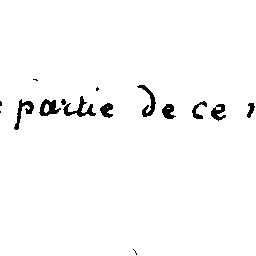 partie de ce